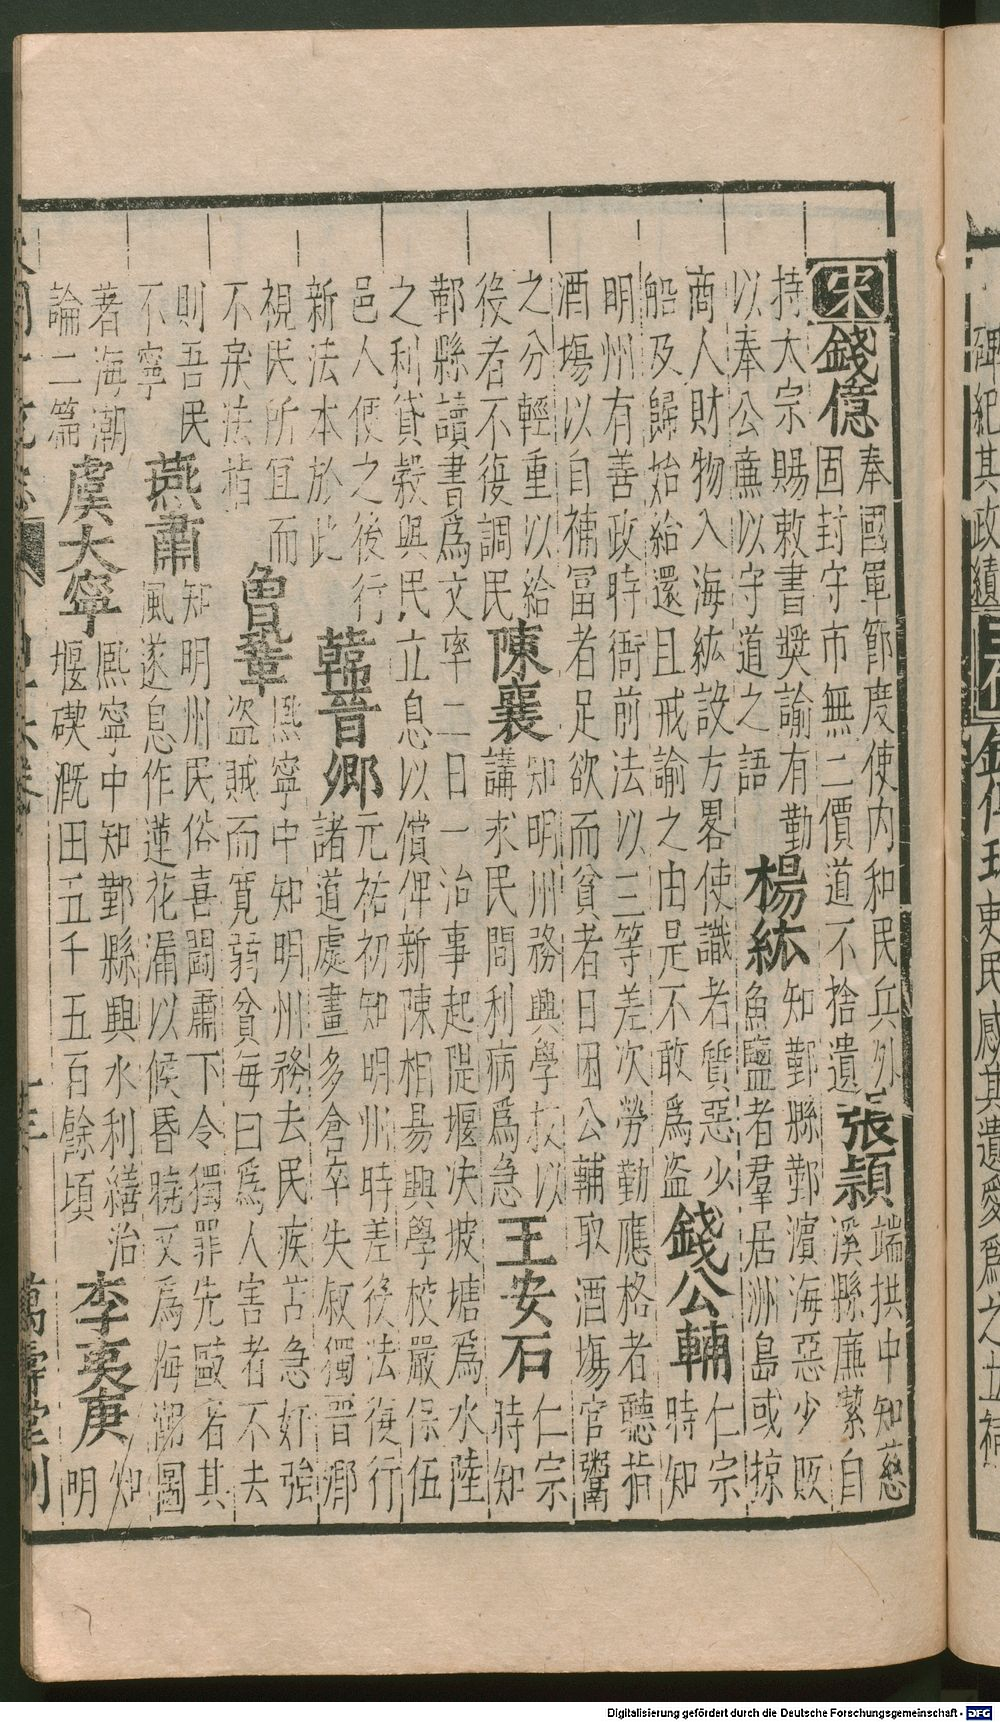 吏民感其遺愛為之立祠
宋
錢億
奉國軍節度使內和民兵外
固封守市無二價道不捨遺
張頴
端拱中知慈
溪縣廉潔自
持大宗賜敕書獎諭有勤
以奉公亷以守道之語
楊紘
知鄞縣鄞濵海惡少販
魚鹽者羣居洲島或掠
商人財物入海紘設方畧使識者質惡少
船及歸始給還且戒諭之由是不敢為盜
錢公輔
仁宗
時知
明州有善政時衙前法以三等差次勞勤應格者聽指
酒塲以自補冨者足欲而貧者日困公輔取酒塲官鬻
之分輕重以給
役者不復調民
陳襄
知明州務興學校以
講求民間利病爲急
王安石
仁宗
時知
鄞縣讀書爲文率二日一治事起隄堰决坡塘爲水陸
之利貸穀與民立息以償俾新陳相易興學校嚴保伍
邑人便之後行
新法本於此
韓晉卿
元祐初知明州時差役法復行
諸道處畫多倉卒失叙獨晉卿
視民所宜而
不戾法指
曾鞏
熈寧中知明州務去民疾苦急奸強
盜賊而寛弱貧每曰爲人害者不去
則吾民
不寧
燕肅
知明州民俗喜鬪肅下令獨罪先毆者其
風遂息作蓮花漏以候昏曉又爲海潮圖
著海潮
論二篇
虞大寧
熈寧中知鄞縣興水利繕治
堰碶溉田五千五百餘頃
李夷庚
知
明
萬壽堂刋
Digitalisierung gefördert durch die Deutsche Forschungsgemeinschaft - DFG